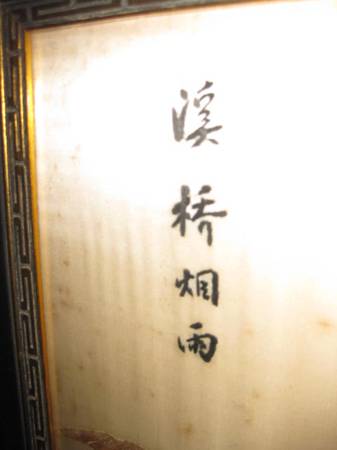 溪桥烟雨